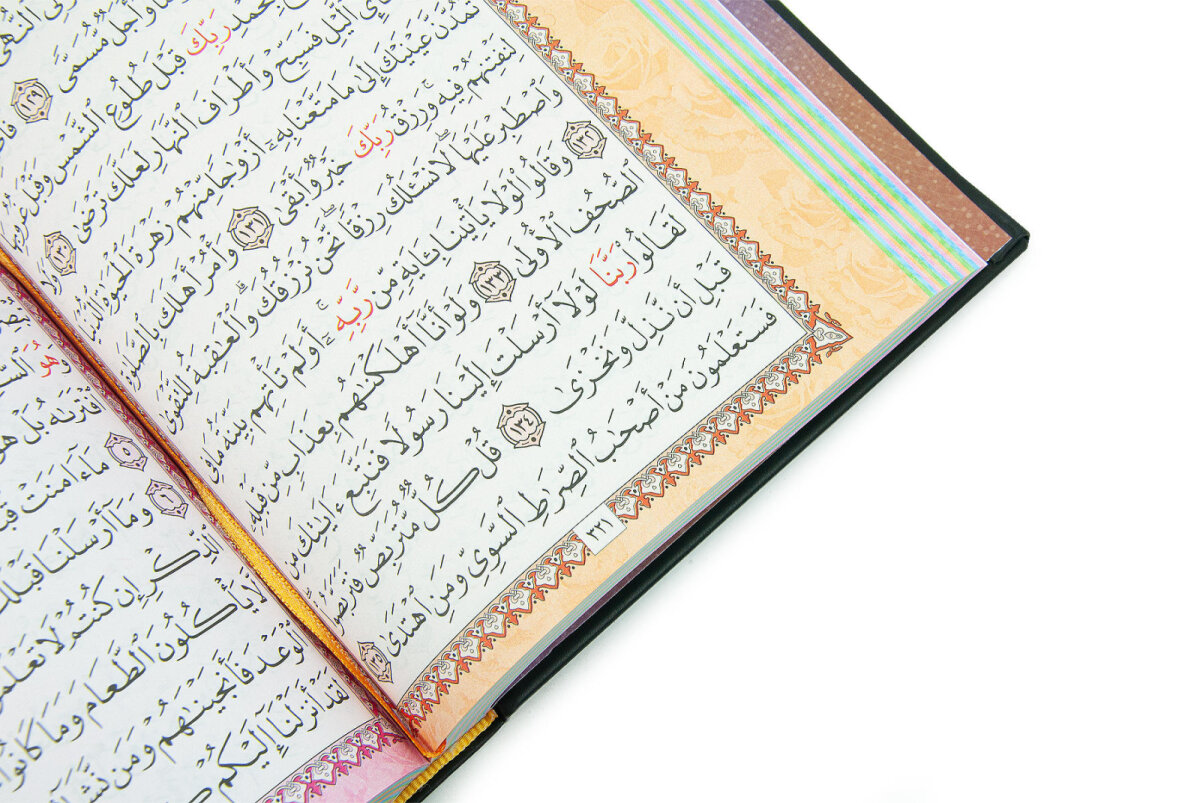 النُّهَىٰ
وَأَجَلٌ مُّسَمًّى ١٢٩
رَبِّكَ قَبْلَ طُلُوعِ ٱلشَّمْسِ وَقَبْلَ غُرُوبِهَا
ٱلَّيْلِ فَسَبِّحْ وَأَطْرَافَ ٱلنَّهَارِ لَعَلَّكَ تَرْضَىٰ ١٣٠ وَلَا
تَمُدَّنَّ عَيْنَيْكَ إِلَىٰ مَا مَتَّعْنَا بِهِۦٓ أَزْوَٰجًا مِّنْهُمْ زَهْرَةَ ٱلْحَيَوٰةِ ٱلدُّنْيَا
لِنَفْتِنَهُمْ فِيهِ ۚ وَرِزْقُ رَبِّكَ خَيْرٌ وَأَبْقَىٰ ١٣١ وَأْمُرْ أَهْلَكَ بِٱلصَّلَوٰةِ
وَٱصْطَبِرْ عَلَيْهَا ۖ لَا نَسْـَٔلُكَ رِزْقًا ۖ نَّحْنُ نَرْزُقُكَ ۗ وَٱلْعَـٰقِبَةُ لِلتَّقْوَىٰ
١٣٢ وَقَالُوا۟ لَوْلَا يَأْتِينَا بِـَٔايَةٍ مِّن رَّبِّهِۦٓ ۚ أَوَلَمْ تَأْتِهِم بَيِّنَةُ مَا فِى
ٱلصُّحُفِ ٱلْأُولَىٰ ١٣٣ وَلَوْ أَنَّآ أَهْلَكْنَـٰهُم بِعَذَابٍ مِّن قَبْلِهِۦ
لَقَالُوا۟ رَبَّنَا لَوْلَآ أَرْسَلْتَ إِلَيْنَا رَسُولًا فَنَتَّبِعَ ءَايَـٰتِكَ مِن
قَبْلِ أَن نَّذِلَّ وَنَخْزَىٰ ١٣٤ قُلْ كُلٌّ مُّتَرَبِّصٌ فَتَرَبَّصُوا۟ ۖ
فَسَتَعْلَمُونَ مَنْ أَصْحَـٰبُ ٱلصِّرَٰطِ ٱلسَّوِىِّ وَمَنِ ٱهْتَدَىٰ ١٣٥
٣٢١
وَهُوَ
ٱفْتَرَىٰهُ بَلْ هُوَ
٥ مَآ ءَامَنَتْ
٦ وَمَآ أَرْسَلْنَا قَبْلَكَ
ٱلذِّكْرِ إِن كُنتُمْ لَا
لَّا يَأْكُلُونَ ٱلطَّعَامَ وَمَا كَانُوا۟
ٱلْوَعْدَ فَأَنجَيْنَـٰهُمْ وَمَن
لَقَدْ أَنزَلْنَآ إِلَيْكُمْ